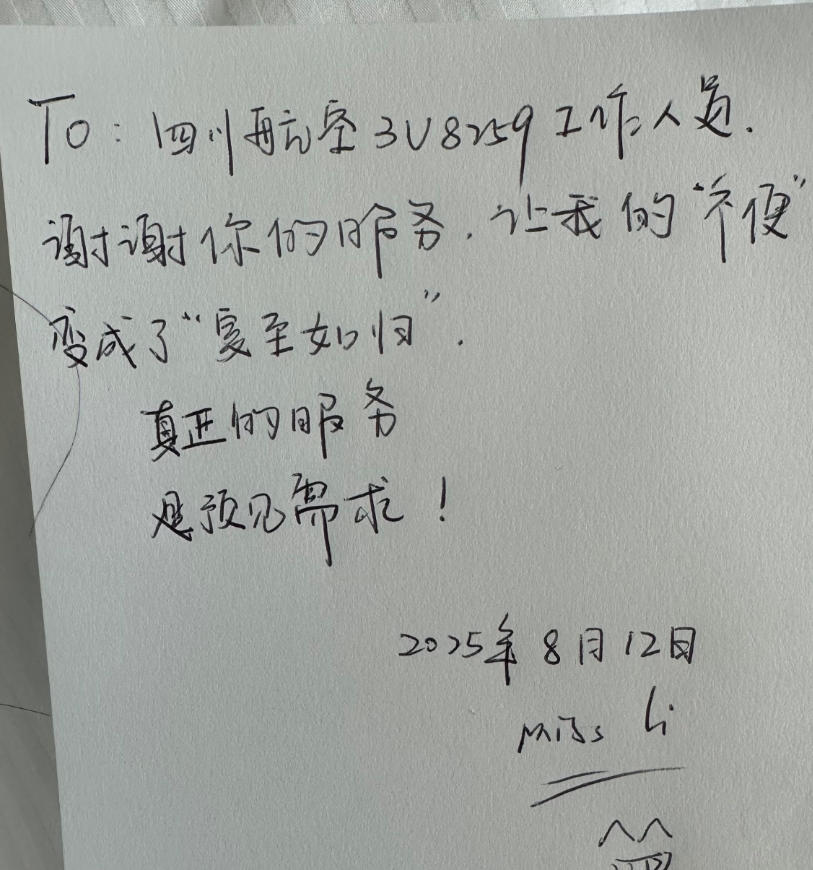 To: 四川航空3U8259工作人员.
谢谢你的服务.让我的“不便”
变成了“宾至如归”.
真正的服务
是预见需求!
2025年8月12日
Miss Li